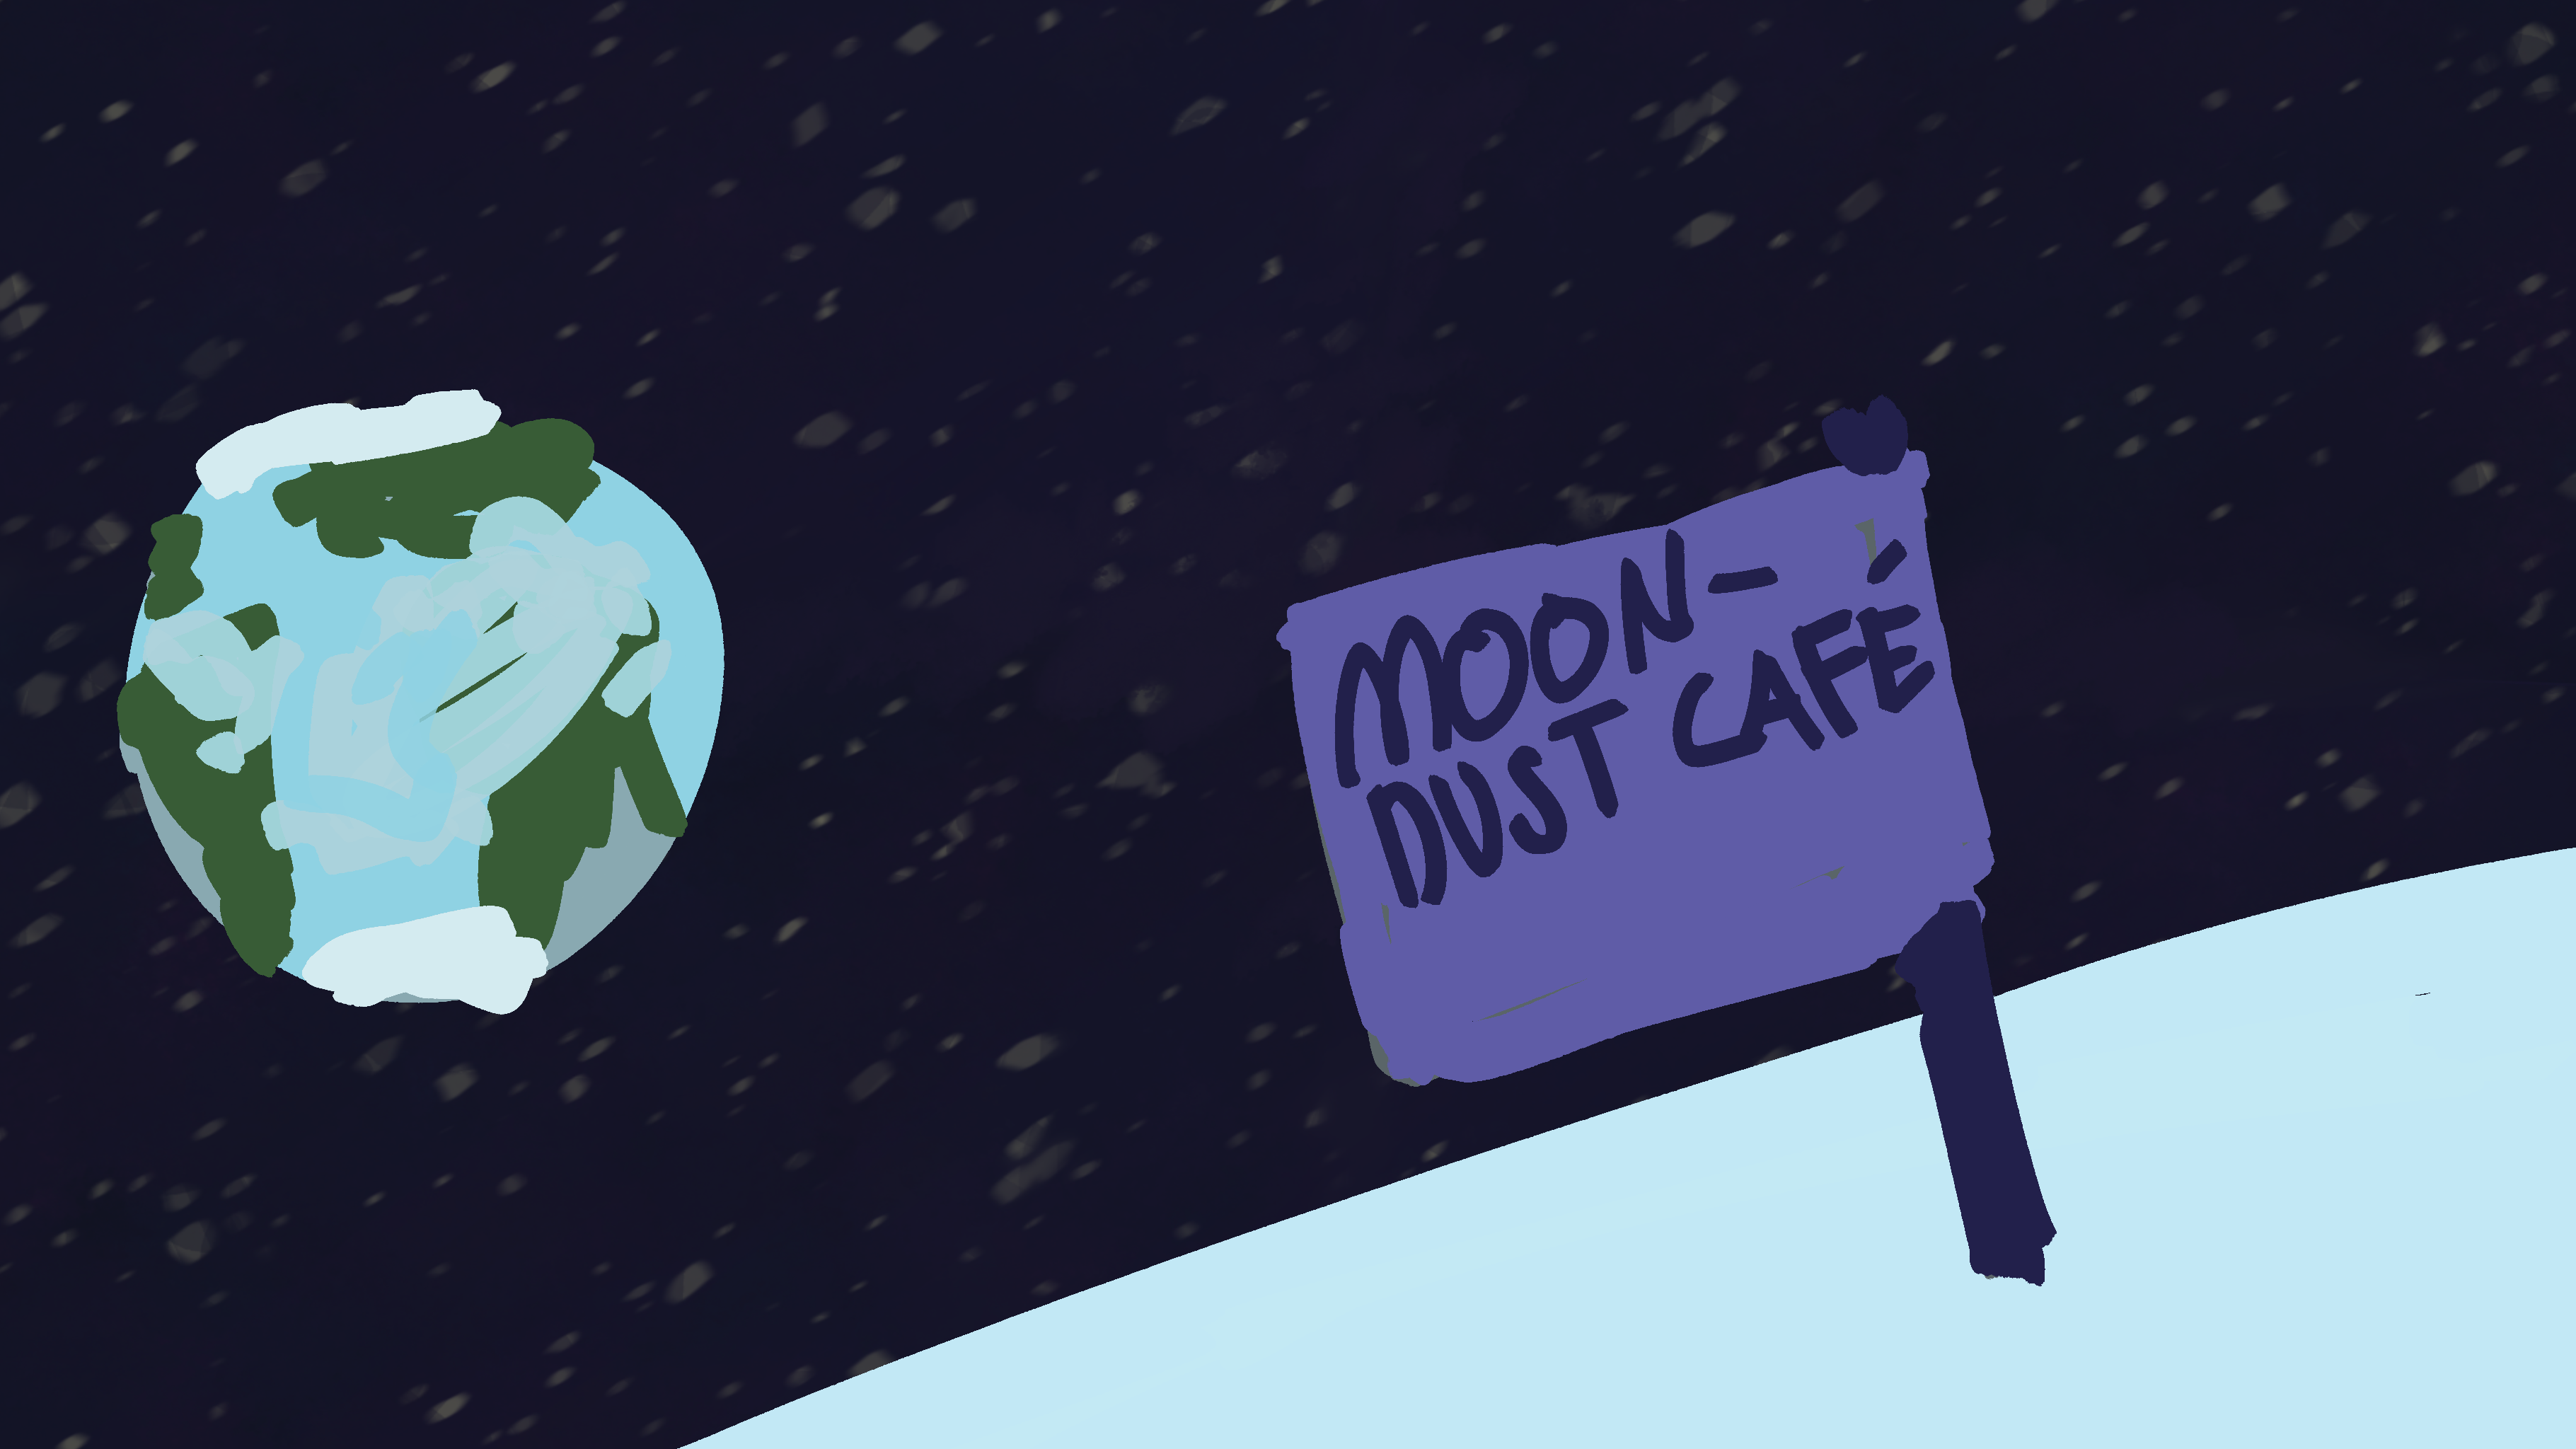 MOON-
DUST CAFÉ